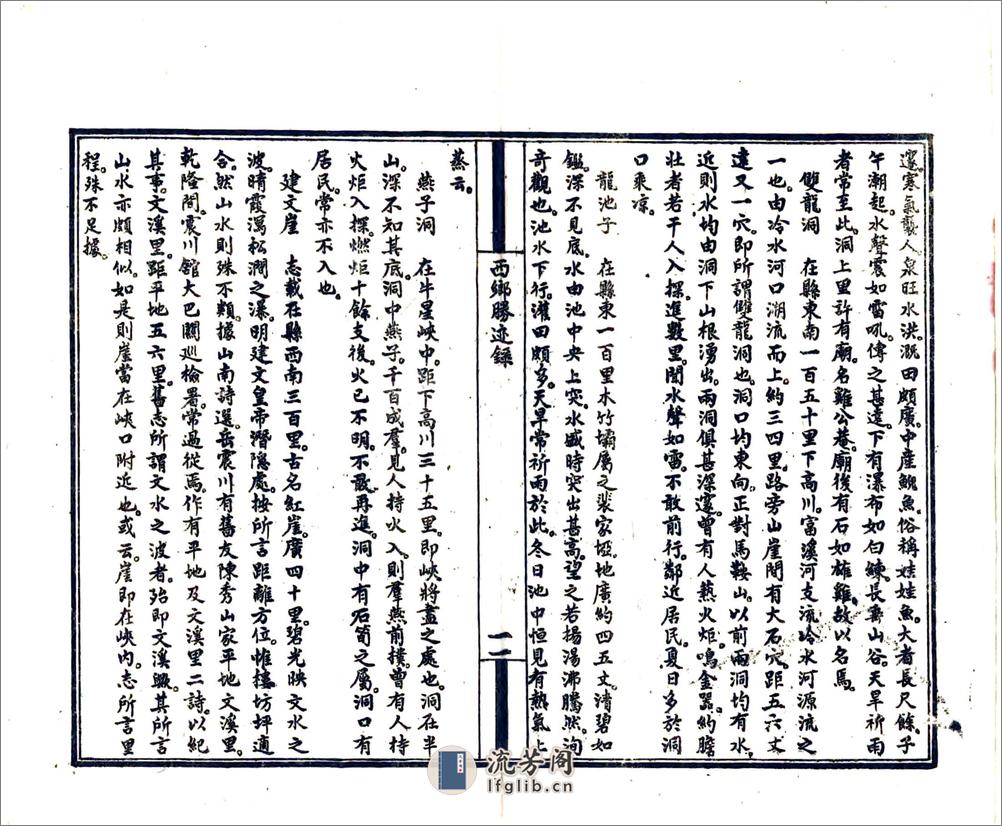 邃。寒氣襲人。泉旺水洪。溉田頗廣。中產鯢魚。俗稱娃娃魚。大者長尺餘。子
午潮起。水聲震如雷吼。傳之甚遠。下有瀑布如白鍊。長垂山谷。天旱祈雨
者常至此。洞上里許有廟。名雞公巷。廟後有石如雄雞。故以名焉。
雙龍洞　在縣東南一百五十里下高川。富溪河支流冷水河源流之
一也。由冷水河口溯流而上。約三四里。路旁山崖間有大石穴。距五六丈
遠又一穴。即所謂雙龍洞也。洞口均東向。正對馬鞍山。以前兩洞均有水。
近則水均由洞下山根湧出。兩洞俱甚深邃。曾有人爇火炬。鳴金器。約膽
壯者若干人入探。進數里。聞水聲如雷。不敢前行。鄰近居民。夏日多於洞
口乘凉。
龍池子　在縣東一百里木竹壩屬之裴家埡。地廣約四五丈。清碧如
鑑。深不見底。水由池中央上突。水盛時突出甚高。望之若揚湯沸騰。然洵
奇觀也。池水下行。灌田頗多。天旱常祈雨於此。冬日池中恒見有熱氣上
西鄉勝迹録
一二
蒸云。
燕子洞　在牛星峽中。距下高川三十五里。即峽將盡之處也。洞在半
山。深不知其底。洞中燕子。千百成羣。見人持火入。則羣燕前撲。曾有人持
火炬入探。燃炬十餘支後。火已不明。不敢再進。洞中有石筍之屬。洞口有
居民。常亦不入也。
建文崖　志載在縣西南三百里。古名紅崖。廣四十里。碧光映文水之
波。晴霞瀉松澗之瀑。明建文皇帝潛隱處。按所言距離方位。惟樓坊坪適
合。然山水則殊不類。據山南詩選。岳震川有舊友陳秀山家平地文溪里。
乾隆間。震川館大巴關巡檢署。常過從焉。作有平地及文溪里二詩。以紀
其事。文溪里。距平地五六里。舊志所謂文水之波者。殆即文溪歟。其所言
山水亦頗相似。如是則崖當在峽口附近也。或云。崖即在峽內。志所言里
程。殊不足據。
流芳阁
lfglib.cn